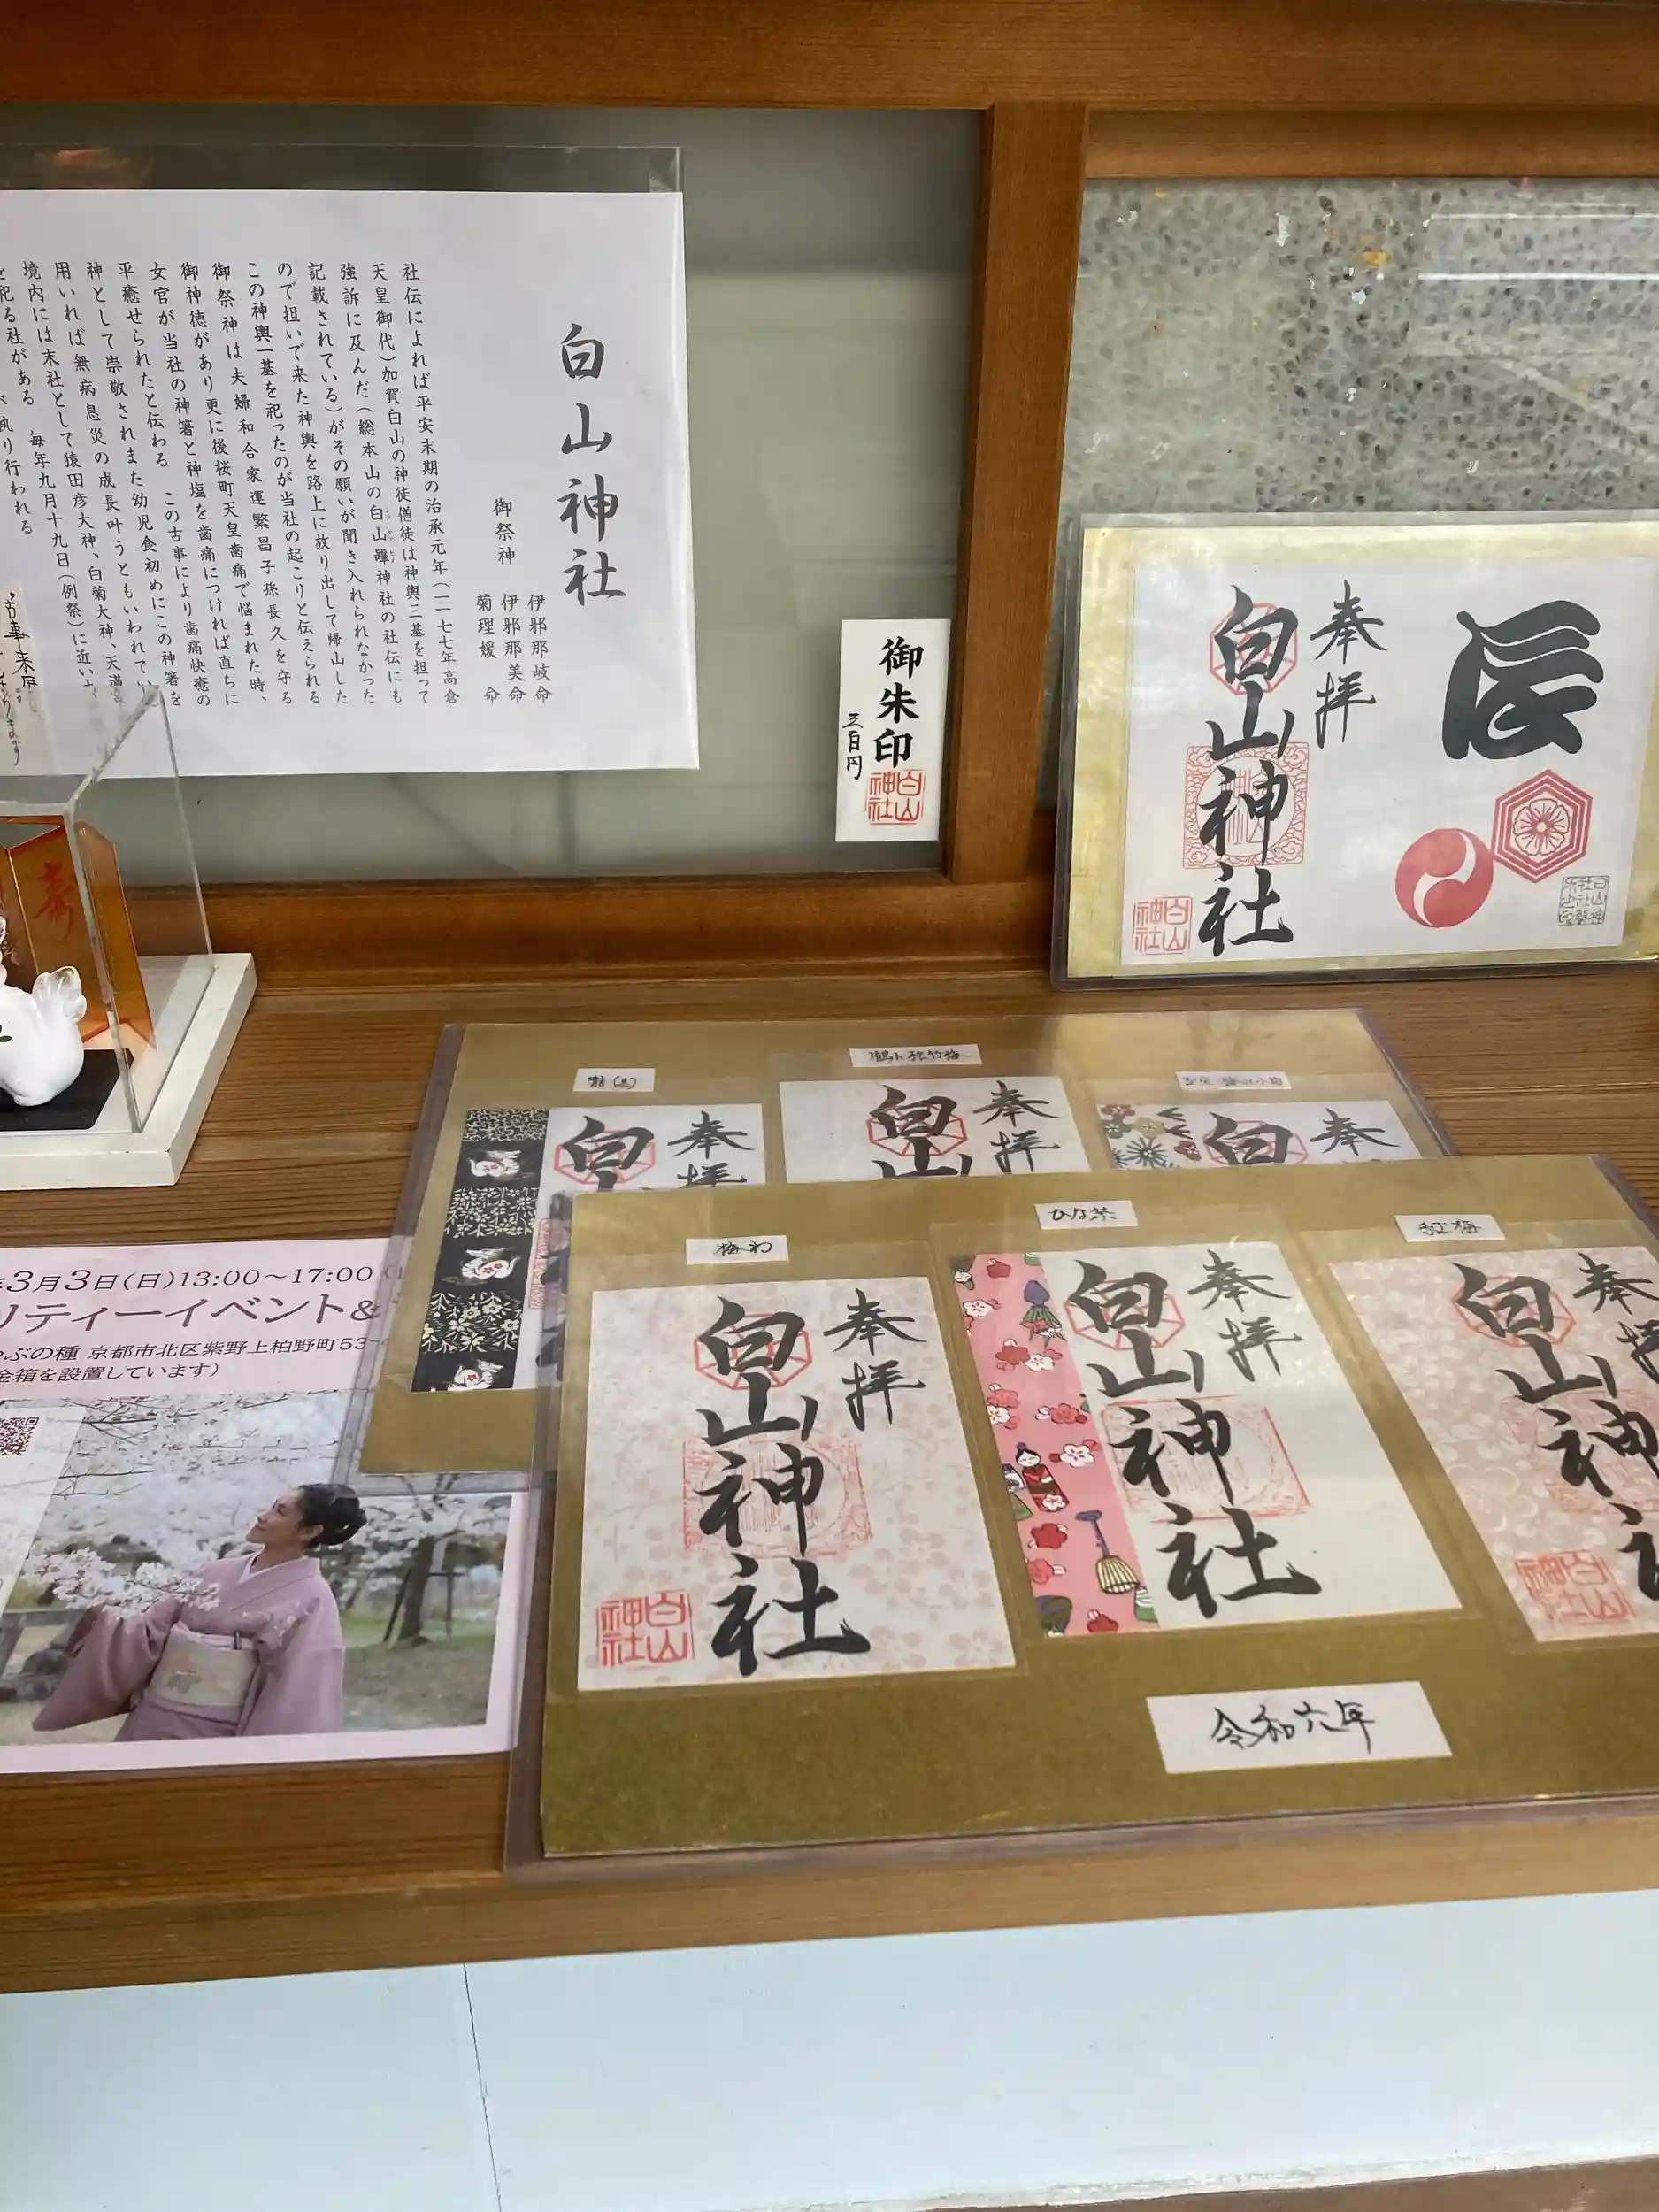 白山神社
御祭神
伊邪那岐命
伊邪那美命
菊理媛 命
社伝によれば平安末期の治承元年(一一七七年高倉
天皇御代)加賀白山の神徒僧徒は神輿三基を担って
強訴に及んだ(総本山の白山神社の社伝にも
記載されている)がその願いが聞き入れられなかった
ので担いで来た神輿を路上に放り出して帰山した
この神輿一基を祀ったのが当社の起こりと伝えられる
御祭神は夫婦和合家運繁昌子孫長久を守る
御神徳があり更に後桜町天皇歯痛で悩まれた時、
女官が当社の神箸と神塩を歯痛につければ直ちに
平癒せられたと伝わる この古事により歯痛快癒の
神として崇敬されまた幼児食初めにこの神箸を
用いれば無病息災の成長叶うともいわれてい
境内には末社として猿田彦大神、白菊大神、天満
を祀る社がある 毎年九月十九日(例祭)に近い
が執り行われる
御朱印
三百円
白山神社
辰
奉拝
白山神社
白山神社
寿
奉拝
白山
鶴亀松竹梅
奉拝
白山
奉拝
白
3月3日(日)13:00~17:00
リティーイベント&
ぶの種 京都市北区紫野上柏野町53-
金箱を設置しています)
奉拝
白山神社
白山神社
ひな祭
奉拝
白山神社
紅梅
奉拝
白山神社
白山神社
令和六年